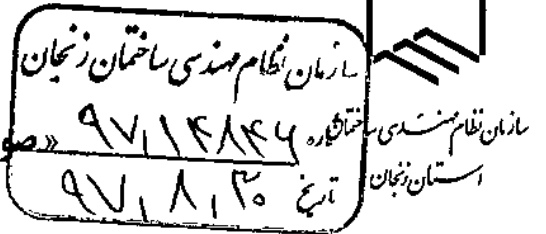 سازمان نظام مهندسی ساختمان زنجان
شماره ۹۷,۱۴۸۴۶
تاریخ ۹۷,۸,۳۰
سازمان نظام مهندسی ساختمان
استان زنجان
«صو